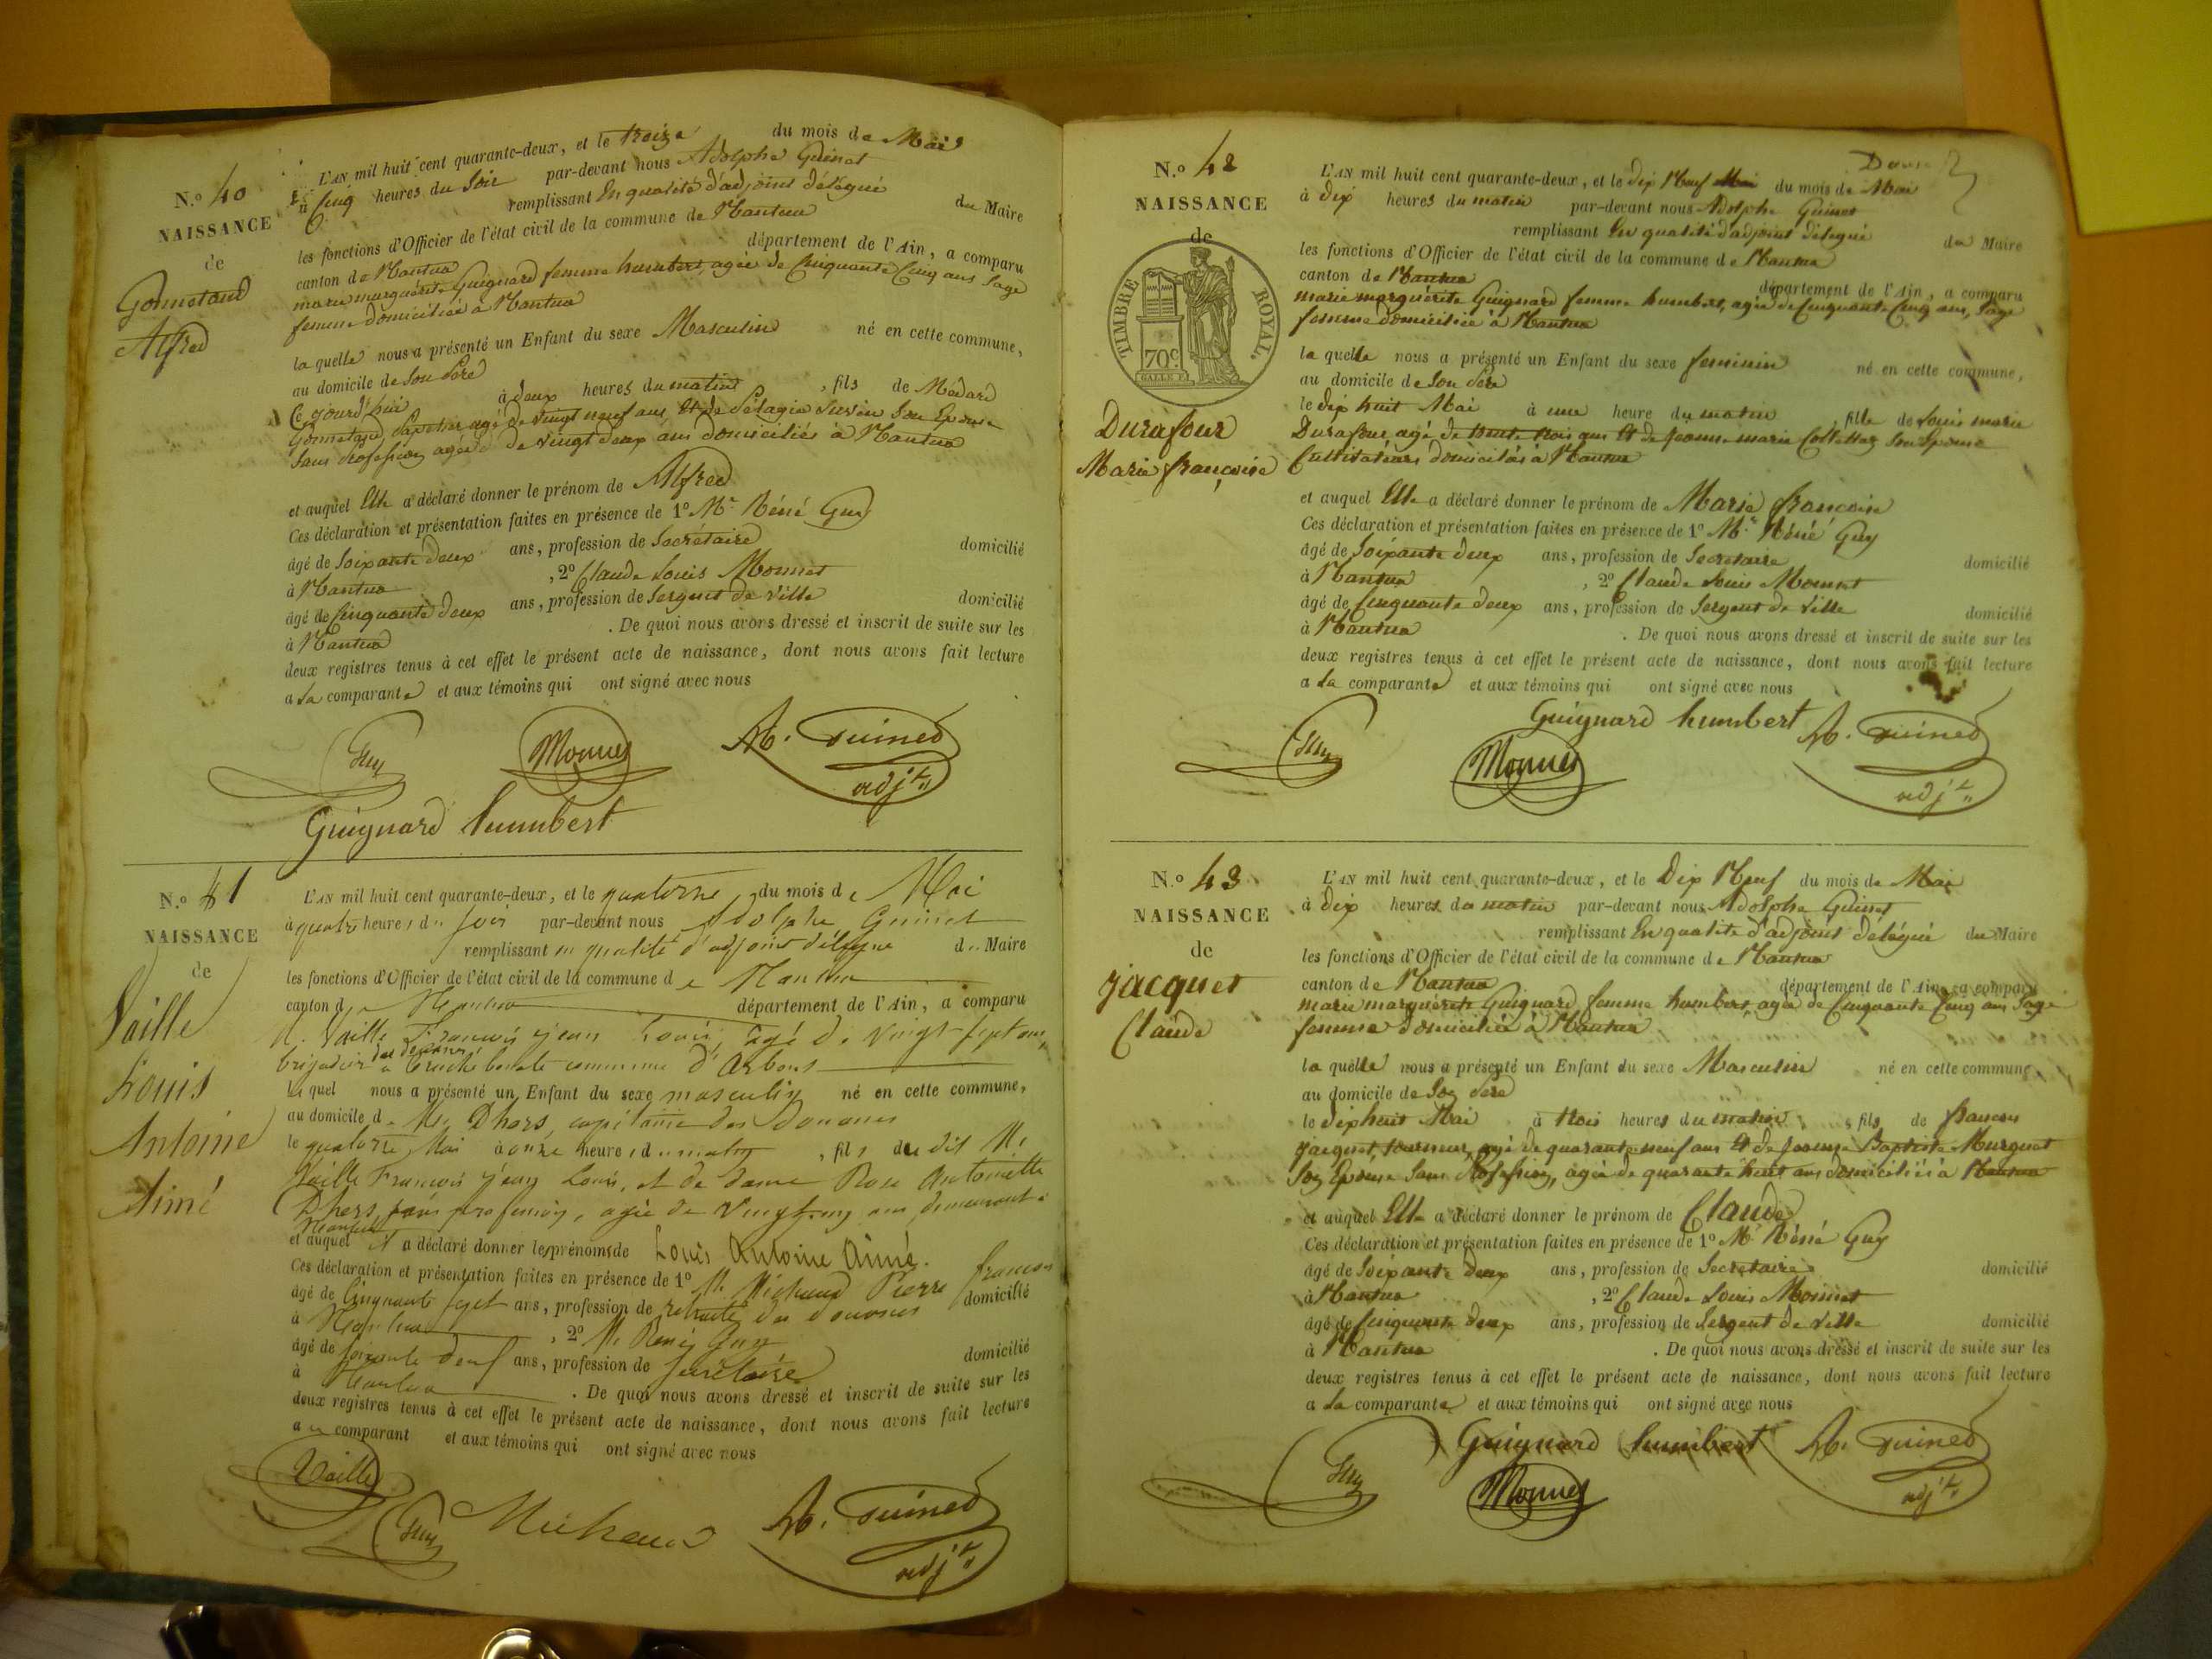 N.o 40
NAISSANCE
de
Gonnetand
Alfred
L'AN mil huit cent quarante-deux, et le treize du mois de Mai
à Cinq heures du Soir par-devant nous Adolphe Guinet
remplissant En qualité d'adjoint délégué du Maire
les fonctions d'Officier de l'état civil de la commune de Nantua
canton de Nantua département de l'Ain, a comparu
marie marguérite Guignard femme humbert, agée de Cinquante Cinq ans Sage
femme domiciliée à Nantua
la quelle nous a présenté un Enfant du sexe Masculin né en cette commune,
au domicile de Son Père
Ce jourd'hui à deux heures du matin, fils de Médard
Gonnetand, agé de vingt neuf ans Et de Pélagie Son Epouse
Sans Profession agée de vingt deux ans domiciliés à Nantua
et auquel Elle a déclaré donner le prénom de Alfred
Ces déclaration et présentation faites en présence de 1o Mr Réné Guy
âgé de Soixante deux ans, profession de Secrétaire domicilié
à Nantua, 2o Claude Louis Monnet
âgé de Cinquante deux ans, profession de Sergent de Ville domicilié
à Nantua. De quoi nous avons dressé et inscrit de suite sur les
deux registres tenus à cet effet le présent acte de naissance, dont nous avons fait lecture
a La comparante et aux témoins qui ont signé avec nous
Guy Monnet A. Guinet
adjt
Guignard humbert
N.o 41
NAISSANCE
de
Vaille
Louis
Antoine
Aimé
L'AN mil huit cent quarante-deux, et le quatorze du mois de Mai
à quatre heures du Soir par-devant nous Adolphe Guinet
remplissant en qualité d'adjoint délégué du Maire
les fonctions d'Officier de l'état civil de la commune de Nantua
canton de Nantua département de l'Ain, a comparu
M. Vaille François jean Louis, agé de vingt-sept ans,
brigadier des douanes à commune d'Arbent
le quel nous a présenté un Enfant du sexe masculin né en cette commune,
au domicile de Mr Dhers, capitaine des Douanes
le quatorze Mai à onze heures du matin, fils du dit Mr
Vaille François jean Louis, et de dame Rose Antoinette
Dhers, sans profession, agée de vingt-cinq ans, demeurant à
Nantua
et auquel il a déclaré donner les prénoms de Louis Antoine Aimé.
Ces déclaration et présentation faites en présence de 1o M. Michaud Pierre françois
âgé de Cinquante Sept ans, profession de retraité des douanes domicilié
à Nantua, 2o Mr René Guy
âgé de Soixante deux ans, profession de Secrétaire domicilié
à Nantua. De quoi nous avons dressé et inscrit de suite sur les
deux registres tenus à cet effet le présent acte de naissance, dont nous avons fait lecture
au comparant et aux témoins qui ont signé avec nous
Vaille
Guy Michaud A. Guinet
adjt
N.o 42
NAISSANCE
de
TIMBRE ROYAL.
70c
Durafour
Marie françoise
L'AN mil huit cent quarante-deux, et le dix Neuf Mai du mois de Mai
à dix heures du matin par-devant nous Adolphe Guinet
remplissant En qualité d'adjoint délégué du Maire
les fonctions d'Officier de l'état civil de la commune de Nantua
canton de Nantua département de l'Ain, a comparu
marie marguérite Guignard femme humbert, agée de Cinquante Cinq ans, Sage
femme domiciliée à Nantua
la quelle nous a présenté un Enfant du sexe feminin né en cette commune,
au domicile de Son Père
le dix huit Mai à une heure du matin fille de Louis marie
Durafour agé de trente trois ans Et de Jeanne marie Collettaz Son Epouse
Cultivateurs domiciliés à Nantua
et auquel Elle a déclaré donner le prénom de Marie françoise
Ces déclaration et présentation faites en présence de 1o Mr Réné Guy
âgé de Soixante deux ans, profession de Secretaire domicilié
à Nantua, 2o Claude Louis Monnet
âgé de Cinquante deux ans, profession de Sergent de Ville domicilié
à Nantua. De quoi nous avons dressé et inscrit de suite sur les
deux registres tenus à cet effet le présent acte de naissance, dont nous avons fait lecture
a La comparante et aux témoins qui ont signé avec nous
Guignard humbert A. Guinet
Guy Monnet adjt
N.o 43
NAISSANCE
de
jacquet
Claude
L'AN mil huit cent quarante-deux, et le Dix Neuf du mois de Mai
à dix heures du matin par-devant nous Adolphe Guinet
remplissant En qualité d'adjoint délégué du Maire
les fonctions d'Officier de l'état civil de la commune de Nantua
canton de Nantua département de l'Ain, a comparu
marie marguérite Guignard femme humbert, agée de Cinquante Cinq ans Sage
femme domiciliée à Nantua
la quelle nous a présenté un Enfant du sexe Masculin né en cette commune,
au domicile de Son Père
le dix huit Mai à trois heures du matin, fils de francois
jacquet, tourneur, agé de quarante neuf ans Et de Jeanne Baptiste Murguet
Son Epouse Sans Profession, agée de quarante huit ans domiciliés à Nantua
et auquel Elle a déclaré donner le prénom de Claude
Ces déclaration et présentation faites en présence de 1o Mr Réné Guy
âgé de Soixante deux ans, profession de Secretaire domicilié
à Nantua, 2o Claude Louis Monnet
âgé de Cinquante deux ans, profession de Sergent de Ville domicilié
à Nantua. De quoi nous avons dressé et inscrit de suite sur les
deux registres tenus à cet effet le présent acte de naissance, dont nous avons fait lecture
a La comparante et aux témoins qui ont signé avec nous
Guignard humbert A. Guinet
Guy Monnet adjt